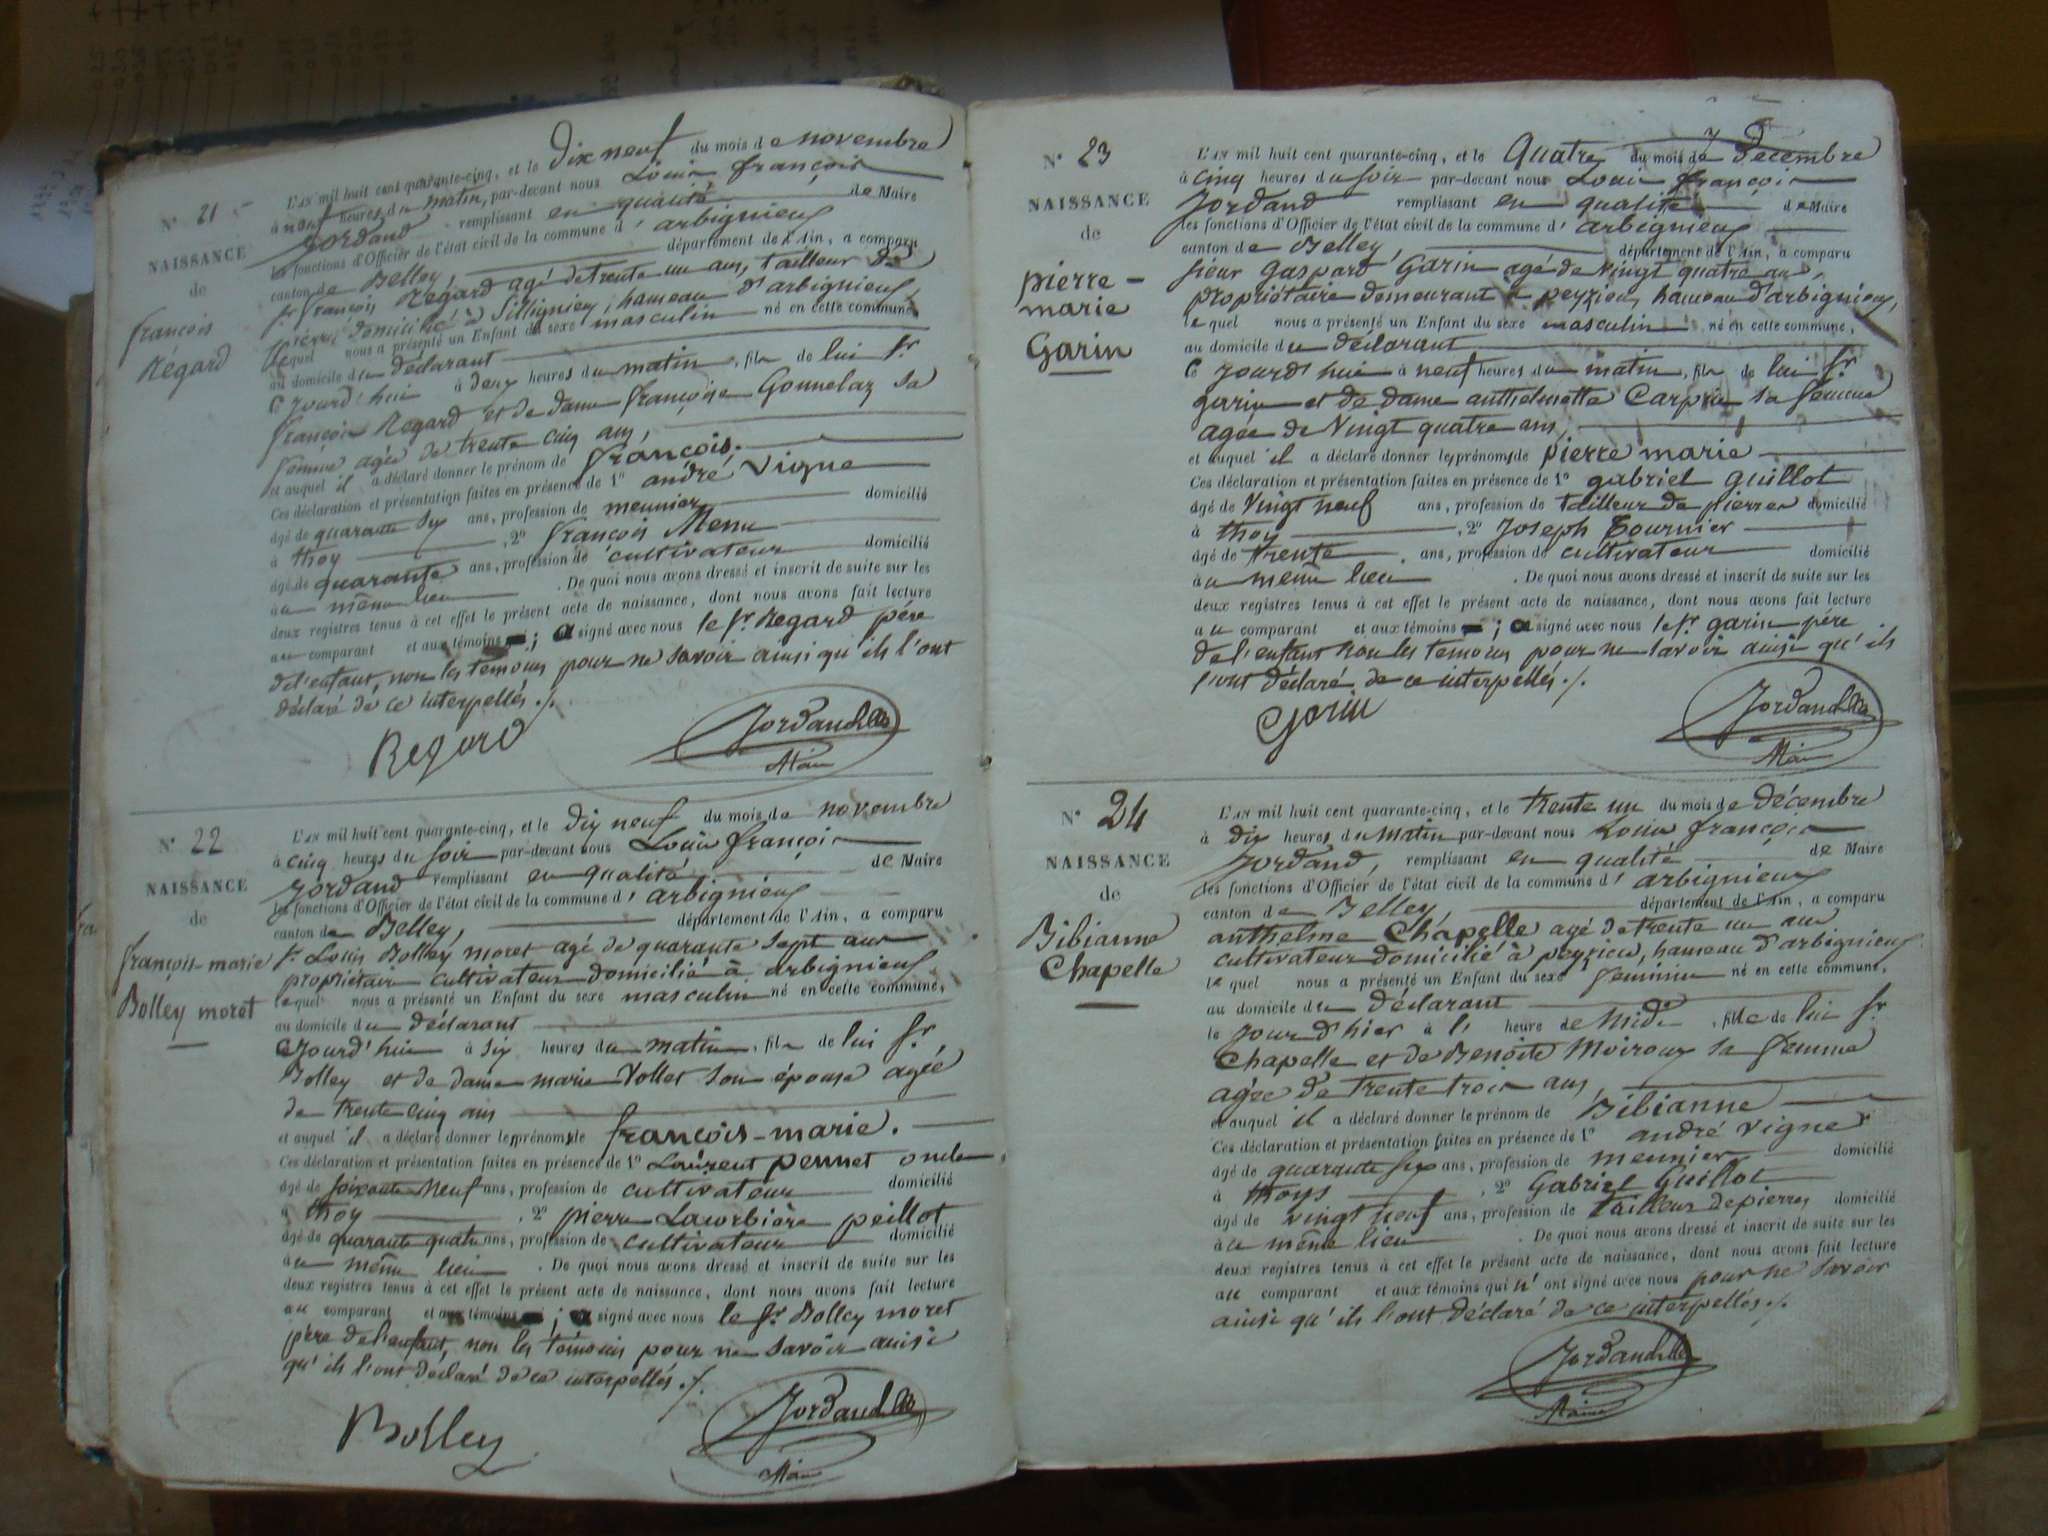 N° 21
NAISSANCE
de
françois
Régard
L'AN mil huit cent quarante-cinq, et le dix neuf du mois de novembre
à neuf heures du matin, par-devant nous Louis françois
Jordand remplissant en qualité de Maire
les fonctions d'Officier de l'état civil de la commune d'arbignieux
canton de Belley, département de l'Ain, a comparu
sr françois Regard agé de trente un ans, tailleur de
pierre domicilié à Sillignieu, hameau d'arbignieux
lequel nous a présenté un Enfant du sexe masculin né en cette commune
au domicile du déclarant
cejourd'hui à deux heures du matin, fils de lui sr
françois Regard et de dame françoise Gonnelaz sa
femme agée de trente cinq ans,
et auquel il a déclaré donner le prénom de françois.
Ces déclaration et présentation faites en présence de 1° andré Vigne
âgé de quarante six ans, profession de meunier domicilié
à thoy , 2° françois Menu
âgé de quarante ans, profession de cultivateur domicilié
au même lieu . De quoi nous avons dressé et inscrit de suite sur les
deux registres tenus à cet effet le présent acte de naissance, dont nous avons fait lecture
au comparant et aux témoins ; a signé avec nous le sr Regard père
de l'enfant, non les temoins pour ne savoir ainsi qu'ils l'ont
déclaré de ce interpellés ./.
Regard
Jordand
Maire
N° 22
NAISSANCE
de
françois-marie
Bolley moret
L'AN mil huit cent quarante-cinq, et le dix neuf du mois de novembre
à cinq heures du soir par-devant nous Louis françois
Jordand remplissant en qualité de Maire
les fonctions d'Officier de l'état civil de la commune d'arbignieux
canton de Belley, département de l'Ain, a comparu
sr Louis Bolley moret agé de quarante sept ans
propriétaire cultivateur domicilié à arbignieux
lequel nous a présenté un Enfant du sexe masculin né en cette commune,
au domicile du déclarant
cejourd'hui à six heures du matin, fils de lui sr,
Bolley et de dame marie Vollet son épouse agée
de trente cinq ans
et auquel il a déclaré donner les prénoms de françois-marie.
Ces déclaration et présentation faites en présence de 1° Laurent pennet oncle
âgé de soixante neuf ans, profession de cultivateur domicilié
à thoy , 2° pierre Lacorbière peillot
âgé de quarante quatre ans, profession de cultivateur domicilié
au même lieu . De quoi nous avons dressé et inscrit de suite sur les
deux registres tenus à cet effet le présent acte de naissance, dont nous avons fait lecture
au comparant et aux témoins ; a signé avec nous le sr Bolley moret
père de l'enfant, non les témoins pour ne savoir ainsi
qu'ils l'ont déclaré de ce interpellés ./.
Bolley
Jordand
Maire
N° 23
NAISSANCE
de
pierre-
marie
Garin
L'AN mil huit cent quarante-cinq, et le Quatre du mois de décembre
à cinq heures du soir par-devant nous Louis françois
Jordand remplissant en qualité de Maire
les fonctions d'Officier de l'état civil de la commune d'arbignieux
canton de Belley, département de l'Ain, a comparu
sieur Gaspard Garin agé de vingt quatre ans,
propriétaire demeurant à peyzieu, hameau d'arbignieux,
lequel nous a présenté un Enfant du sexe masculin né en cette commune,
au domicile du déclarant
ce jourd'hui à neuf heures du matin, fils de lui sr
garin et de dame anthelmette Carpin sa femme
agée de vingt quatre ans,
et auquel il a déclaré donner les prénoms de pierre marie
Ces déclaration et présentation faites en présence de 1° gabriel guillot
âgé de vingt neuf ans, profession de tailleur de pierres domicilié
à thoy , 2° Joseph Tournier
âgé de trente ans, profession de cultivateur domicilié
au même lieu . De quoi nous avons dressé et inscrit de suite sur les
deux registres tenus à cet effet le présent acte de naissance, dont nous avons fait lecture
au comparant et aux témoins ; a signé avec nous le sr garin père
de l'enfant non les temoins pour ne savoir ainsi qu'ils
l'ont déclaré de ce interpellés ./.
Garin
Jordand
Maire
N° 24
NAISSANCE
de
Bibianne
Chapelle
L'AN mil huit cent quarante-cinq, et le trente un du mois de décembre
à dix heures du matin par-devant nous Louis françois
Jordand, remplissant en qualité de Maire
les fonctions d'Officier de l'état civil de la commune d'arbignieux
canton de Belley département de l'Ain, a comparu
anthelme Chapelle agé de trente un ans
cultivateur domicilié à peyzieu, hameau d'arbignieux
lequel nous a présenté un Enfant du sexe feminin né en cette commune,
au domicile du déclarant
le jour d'hier à l'heure de Midi, fille de lui sr
Chapelle et de Benoite Moiroux sa femme
agée de trente trois ans,
et auquel il a déclaré donner le prénom de Bibianne
Ces déclaration et présentation faites en présence de 1° andré vigne
âgé de quarante six ans, profession de meunier domicilié
à thoys , 2° Gabriel Guillot
âgé de vingt neuf ans, profession de tailleur de pierres domicilié
au même lieu . De quoi nous avons dressé et inscrit de suite sur les
deux registres tenus à cet effet le présent acte de naissance, dont nous avons fait lecture
au comparant et aux témoins qui n'ont signé avec nous pour ne savoir
ainsi qu'ils l'ont déclaré de ce interpellés ./.
Jordand
Maire